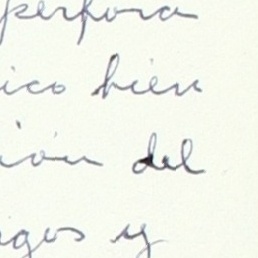 perfora
ico bien
ión del
igos y